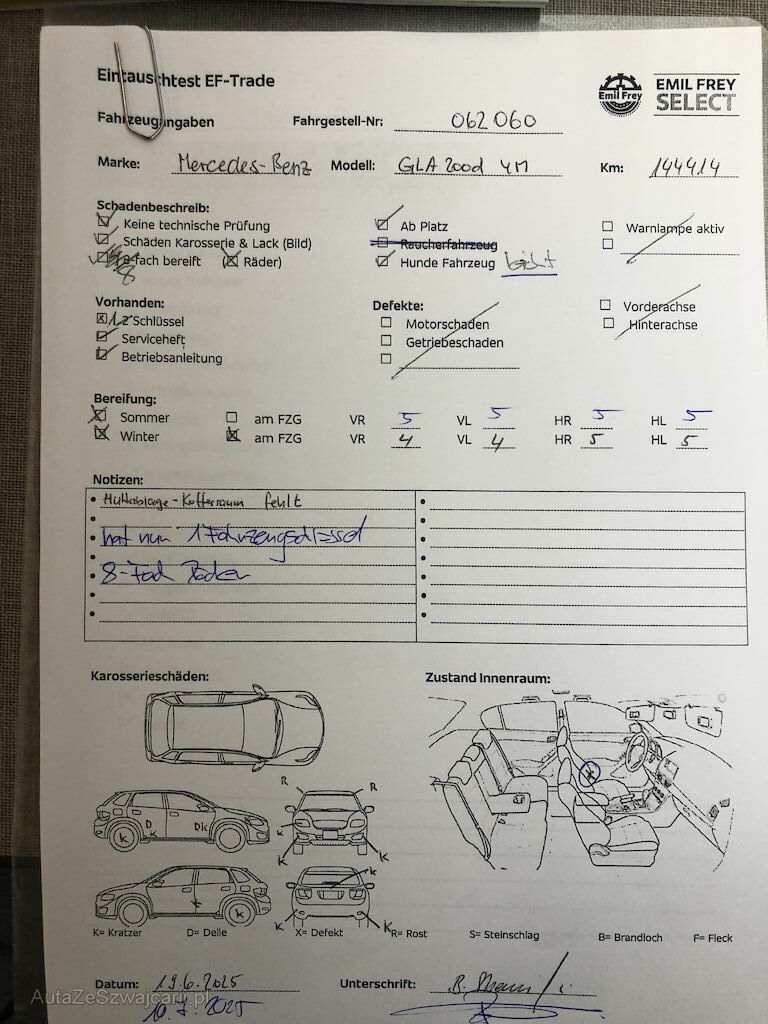 Eintauschtest EF-Trade
Emil Frey
EMIL FREY
SELECT
Fahrzeugangaben Fahrgestell-Nr: 062060
Marke: Mercedes-Benz Modell: GLA 200d 4M Km: 144414
Schadenbeschreib:
Keine technische Prüfung
Ab Platz
Warnlampe aktiv
Schäden Karosserie & Lack (Bild)
Raucherfahrzeug
8-fach bereift (☒ Räder)
8
Hunde Fahrzeug leicht
Vorhanden:
Defekte:
1 2 Schlüssel
Motorschaden
Vorderachse
Serviceheft
Getriebeschaden
Hinterachse
Betriebsanleitung
Bereifung:
Sommer am FZG VR 5 VL 5 HR 5 HL 5
Winter am FZG VR 4 VL 4 HR 5 HL 5
Notizen:
Huttablage-Kofferraum fehlt
hat nur 1 Fahrzeugschlüssel
8-Fach Räder
Karosserieschäden:
Zustand Innenraum:
R R
K D DK K K K
K K K K
K= Kratzer D= Delle X= Defekt R= Rost S= Steinschlag B= Brandloch F= Fleck
Datum: 19.6.2025 Unterschrift:
10.7.2025
AutaZeSzwajcarii.pl